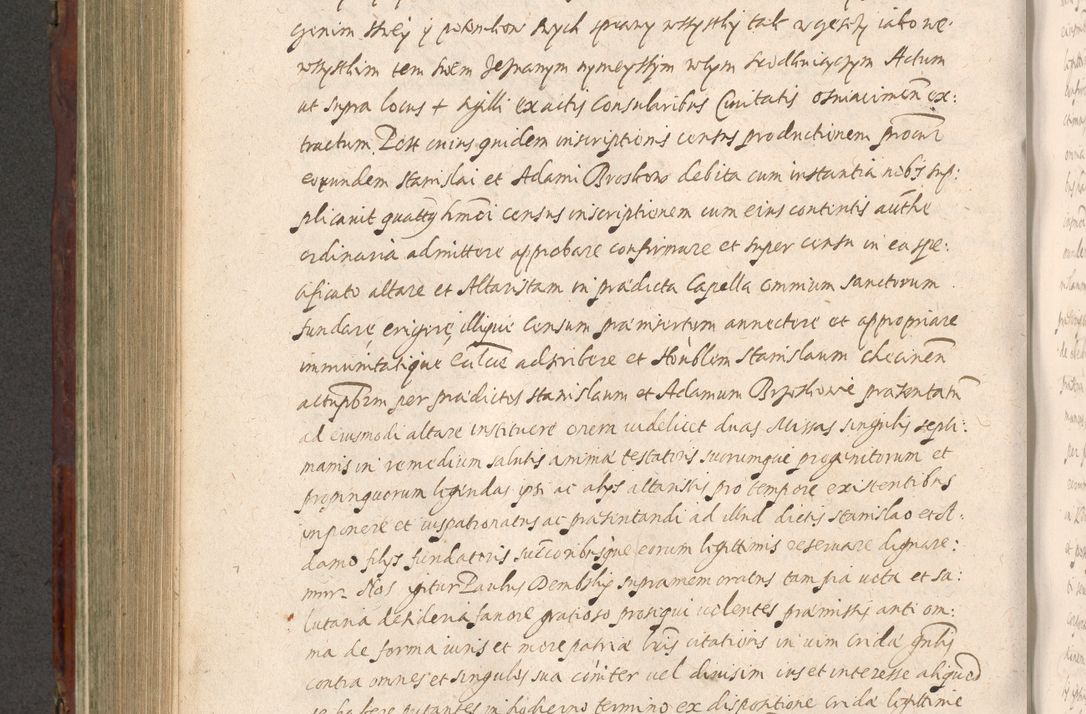 genim swey y potomkow swych sprawy wszystky tak w gesty iakowe
wszystkim tem swem Jespanym nymeyszym wszym swodhniczym Actum
ut supra locus + sigilli ex actis Consularibus Civitatis osniacimen ex:
tractum. Post cuius quidem inscriptionis census productionem procur
eorundem Stanislai et Adami Broskow debita cum instantia nobis sup:
plicavit quatty hmoi census inscriptionem cum eius contentis authe
ordinaria admittere approbare confirmare et super censu in ea spe:
cificato altare et Altaristam in prædicta Capella omnium sanctorum
fundare, erigere, illique Censum præinsertum annectere et appropriare
immunitatique Ecclcæ adscribere et Honblem Stanislaum checinen
actu pbrm per prædictos Stanislaum et Adamum Brzoskowie præsentatu
ad eiusmodi altare instituere onera videlicet duas Missas singulis septi:
manis in remedium salutis animæ testatoris suorumque progenitorum et
propinquorum legendas ipsi ac alys altaristis pro tempore existentibus
imponere et iuspatronatus ac præsentandi ad illud dictis Stanislao et A:
damo filys fundatoris successoribusque eorum legittimis reservare dignare:
mur. Nos igitur Paulus Dembsky supramemoratus tam pia vota et sa:
lutaria desideria favore gratioso prosequi volentes præmissis anti om:
nia de forma iuris et more patriæ lris citationis in vim cridæ gnlis
contra omnes et singulos sua coniter vel divisim ius et interesse aliquod
se habere putantes in hodierno termino ex dispositione cridæ legittime